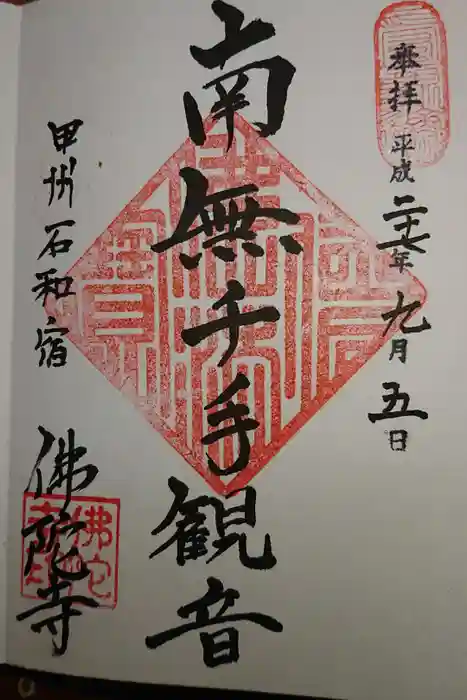 奉拝 平成二十七年九月五日
南無千手観音
甲州石和宿 佛陀寺
佛陀